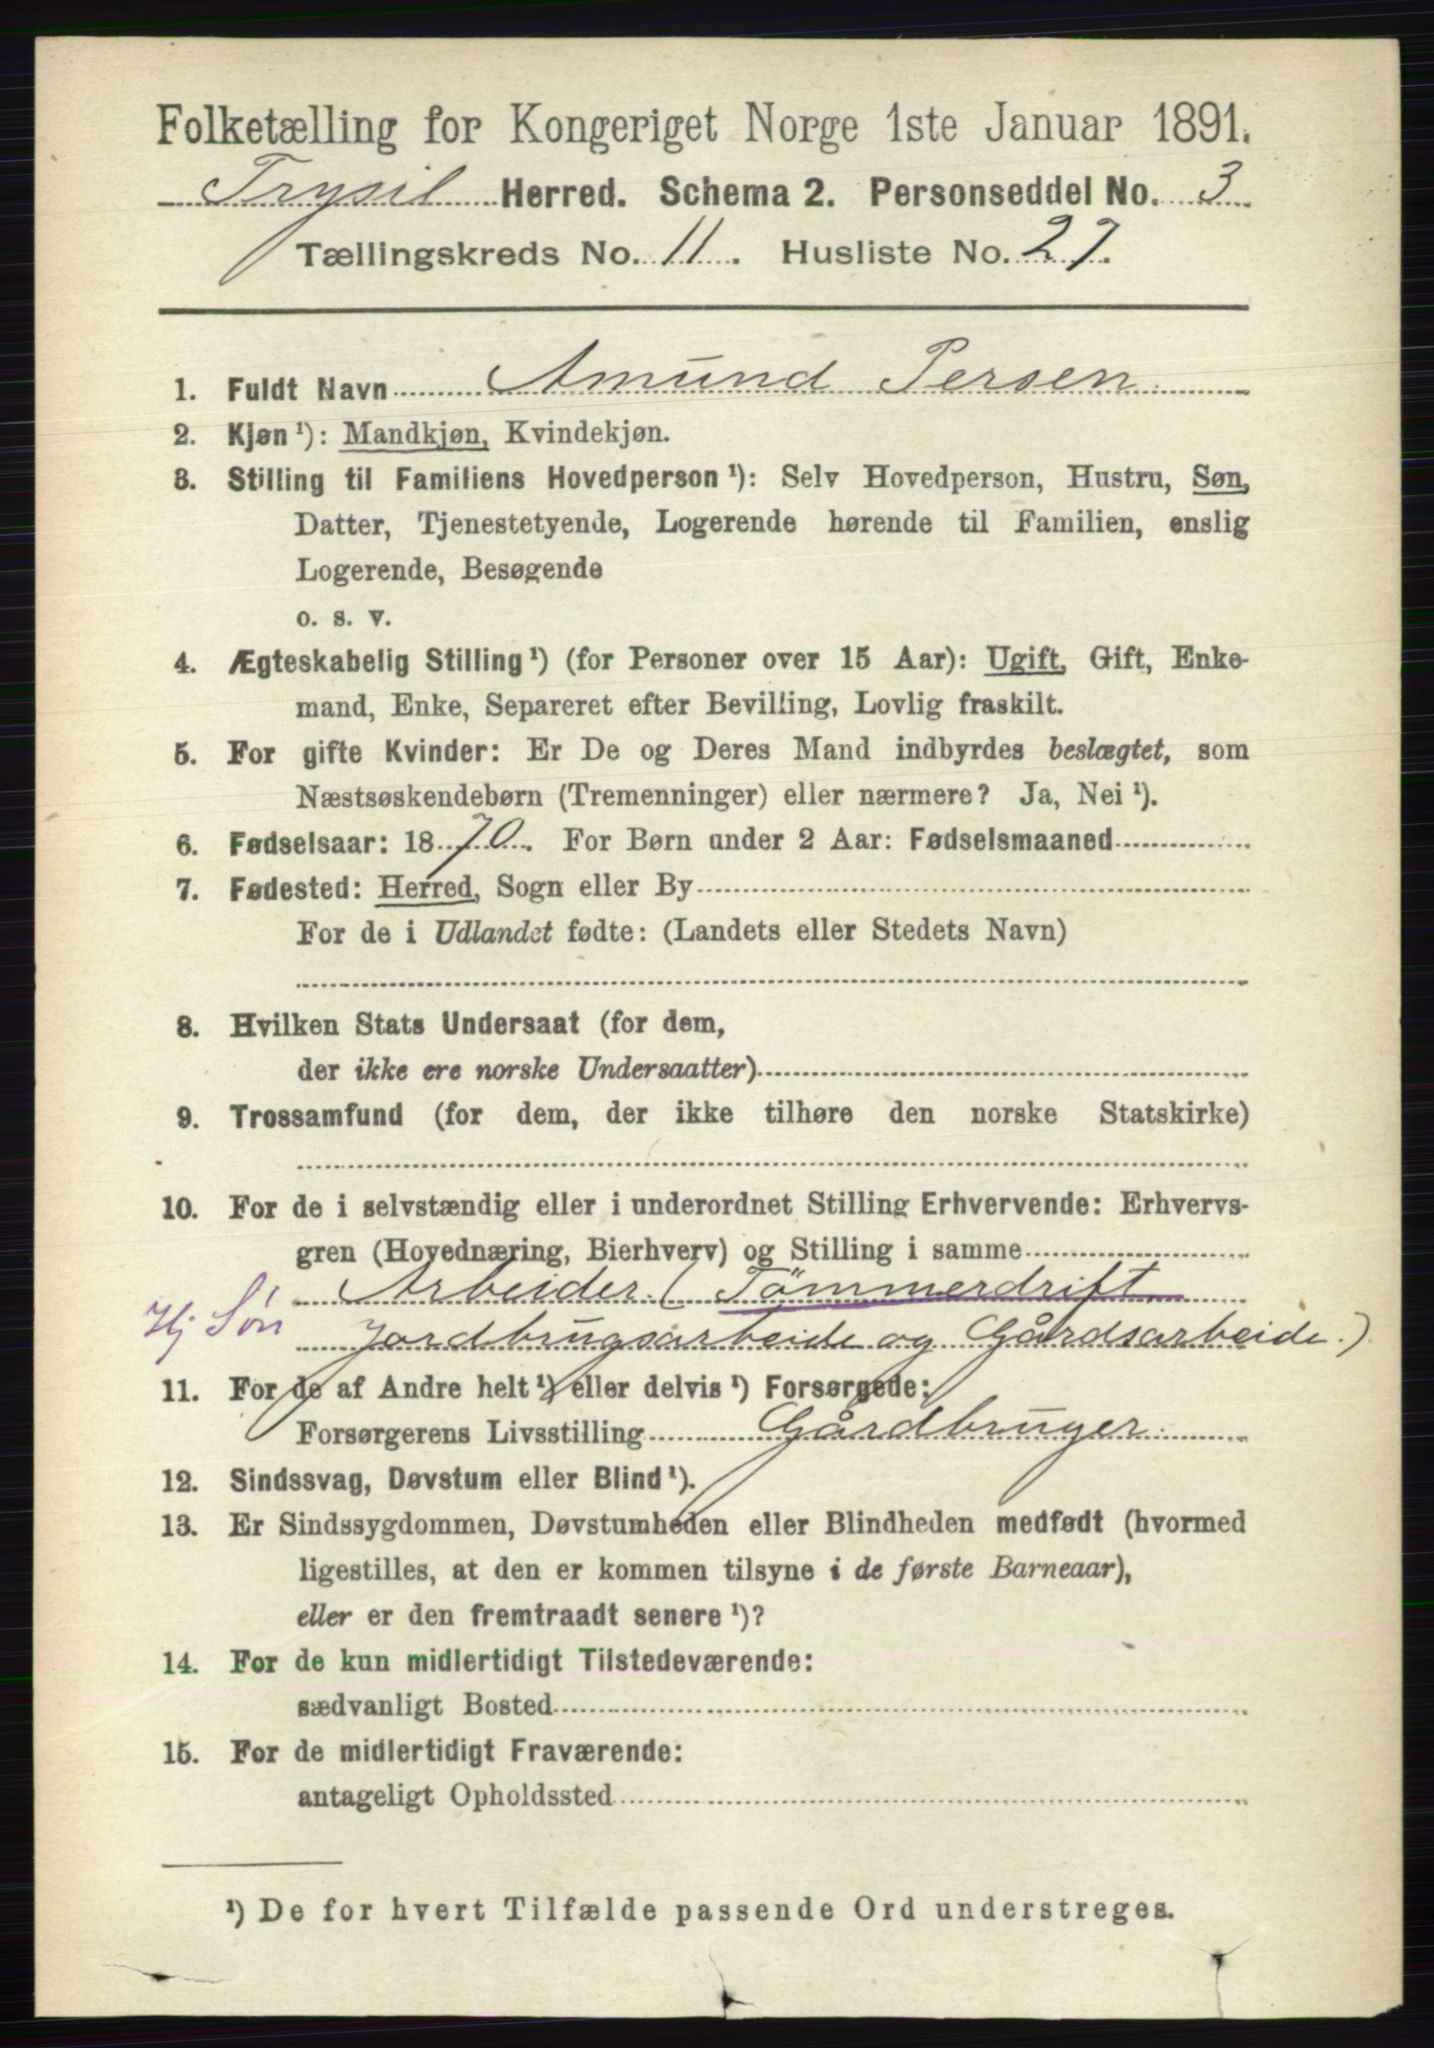 Folketælling for Kongeriget Norge 1ste Januar 1891.
Trysil Herred. Schema 2. Personseddel No. 3
Tællingskreds No. 11. Husliste No. 27.
1. Fuldt Navn Amund Persen
2. Kjøn ¹): Mandkjøn, Kvindekjøn.
3. Stilling til Familiens Hovedperson ¹): Selv Hovedperson, Hustru, Søn,
Datter, Tjenestetyende, Logerende hørende til Familien, enslig
Logerende, Besøgende
o. s. v.
4. Ægteskabelig Stilling ¹) (for Personer over 15 Aar): Ugift, Gift, Enke-
mand, Enke, Separeret efter Bevilling, Lovlig fraskilt.
5. For gifte Kvinder: Er De og Deres Mand indbyrdes beslægtet, som
Næstsøskendebørn (Tremenninger) eller nærmere? Ja, Nei ¹).
6. Fødselsaar: 1870. For Børn under 2 Aar: Fødselsmaaned
7. Fødested: Herred, Sogn eller By
For de i Udlandet fødte: (Landets eller Stedets Navn)
8. Hvilken Stats Undersaat (for dem,
der ikke ere norske Undersaatter)
9. Trossamfund (for dem, der ikke tilhøre den norske Statskirke)
10. For de i selvstændig eller i underordnet Stilling Erhvervende: Erhvervs-
gren (Hovednæring, Bierhverv) og Stilling i samme
Arbeider (Tömmerdrift
Hj Søn Jordbrugsarbeide og Gårdsarbeide.)
11. For de af Andre helt ¹) eller delvis ¹) Forsørgede:
Forsørgerens Livsstilling Gårdbruger.
12. Sindssvag, Døvstum eller Blind ¹).
13. Er Sindssygdommen, Døvstumheden eller Blindheden medfødt (hvormed
ligestilles, at den er kommen tilsyne i de første Barneaar),
eller er den fremtraadt senere ¹)?
14. For de kun midlertidigt Tilstedeværende:
sædvanligt Bosted
15. For de midlertidigt Fraværende:
antageligt Opholdssted
¹) De for hvert Tilfælde passende Ord understreges.